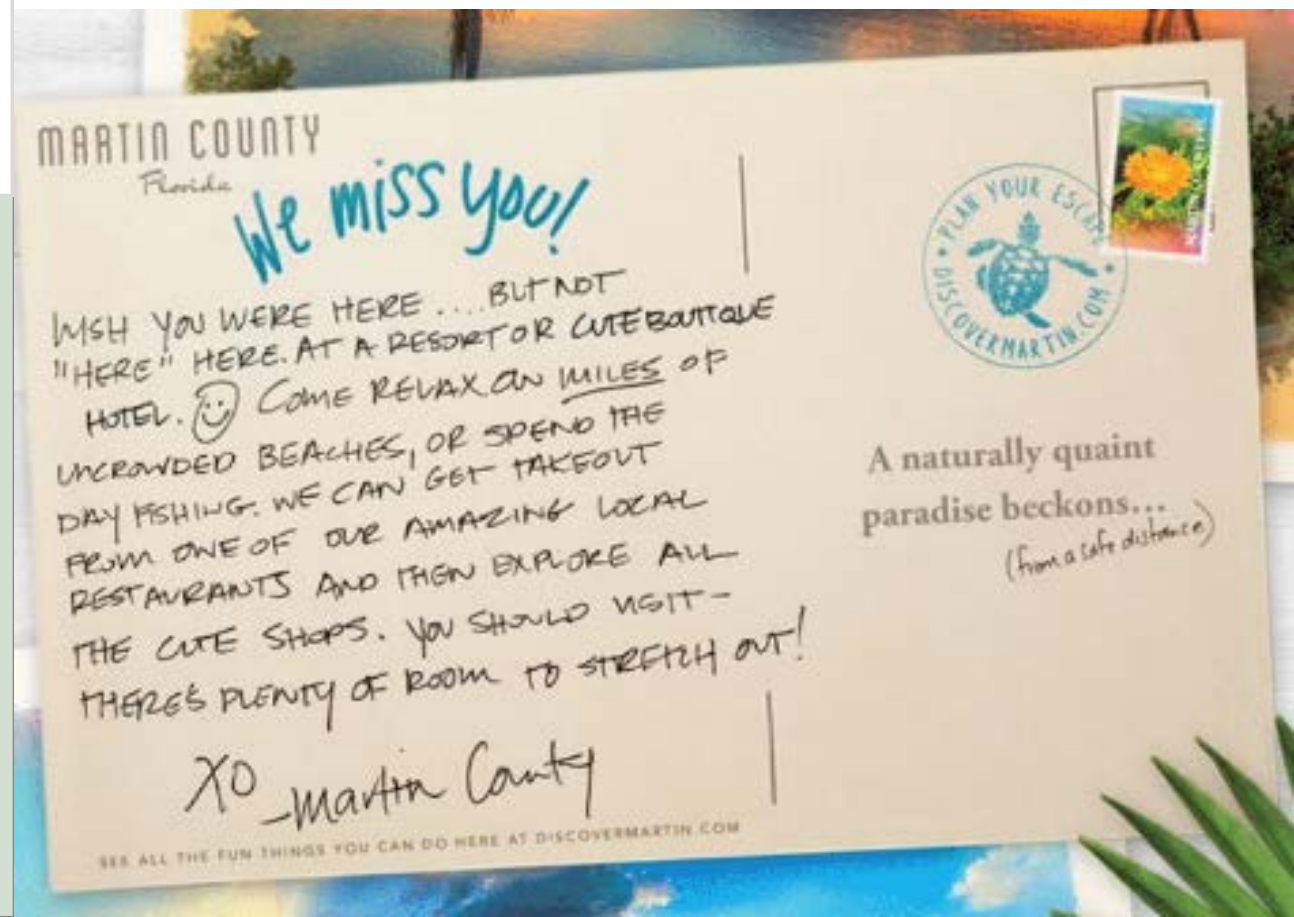 MARTIN COUNTY
Florida
We miss you!
WISH YOU WERE HERE .... BUT NOT
"HERE" HERE. AT A RESORT OR CUTE BOUTIQUE
HOTEL. COME RELAX ON MILES OF
UNCROWDED BEACHES, OR SPEND THE
DAY FISHING. WE CAN GET TAKEOUT
FROM ONE OF OUR AMAZING LOCAL
RESTAURANTS AND THEN EXPLORE ALL
THE CUTE SHOPS. YOU SHOULD VISIT-
THERE'S PLENTY OF ROOM TO STRETCH OUT!
XO
-Martin County
SEE ALL THE FUN THINGS YOU CAN DO HERE AT DISCOVERMARTIN.COM
• PLAN YOUR ESCAPE •
DISCOVERMARTIN.COM
A naturally quaint
paradise beckons...
(from a safe distance)